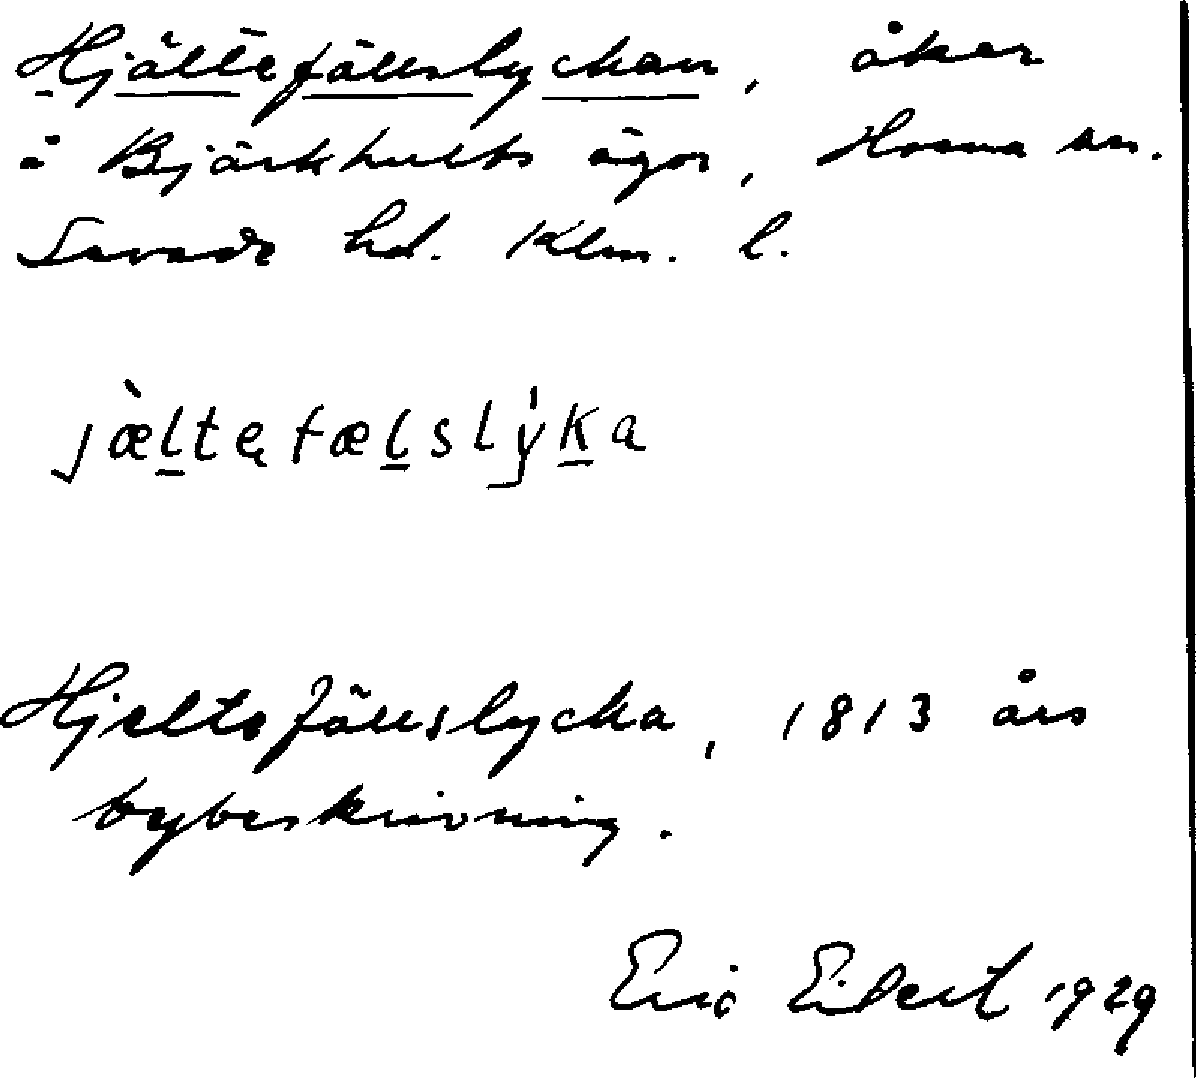 Hjältefällslyckan, åker
å Björkhults ägor, Horns sn.
hd. Klm. l.
jæ̀ltefælslýka
Hjeltefällslycka, 1813 års
bybeskrivning.
Eric Eilert 1929